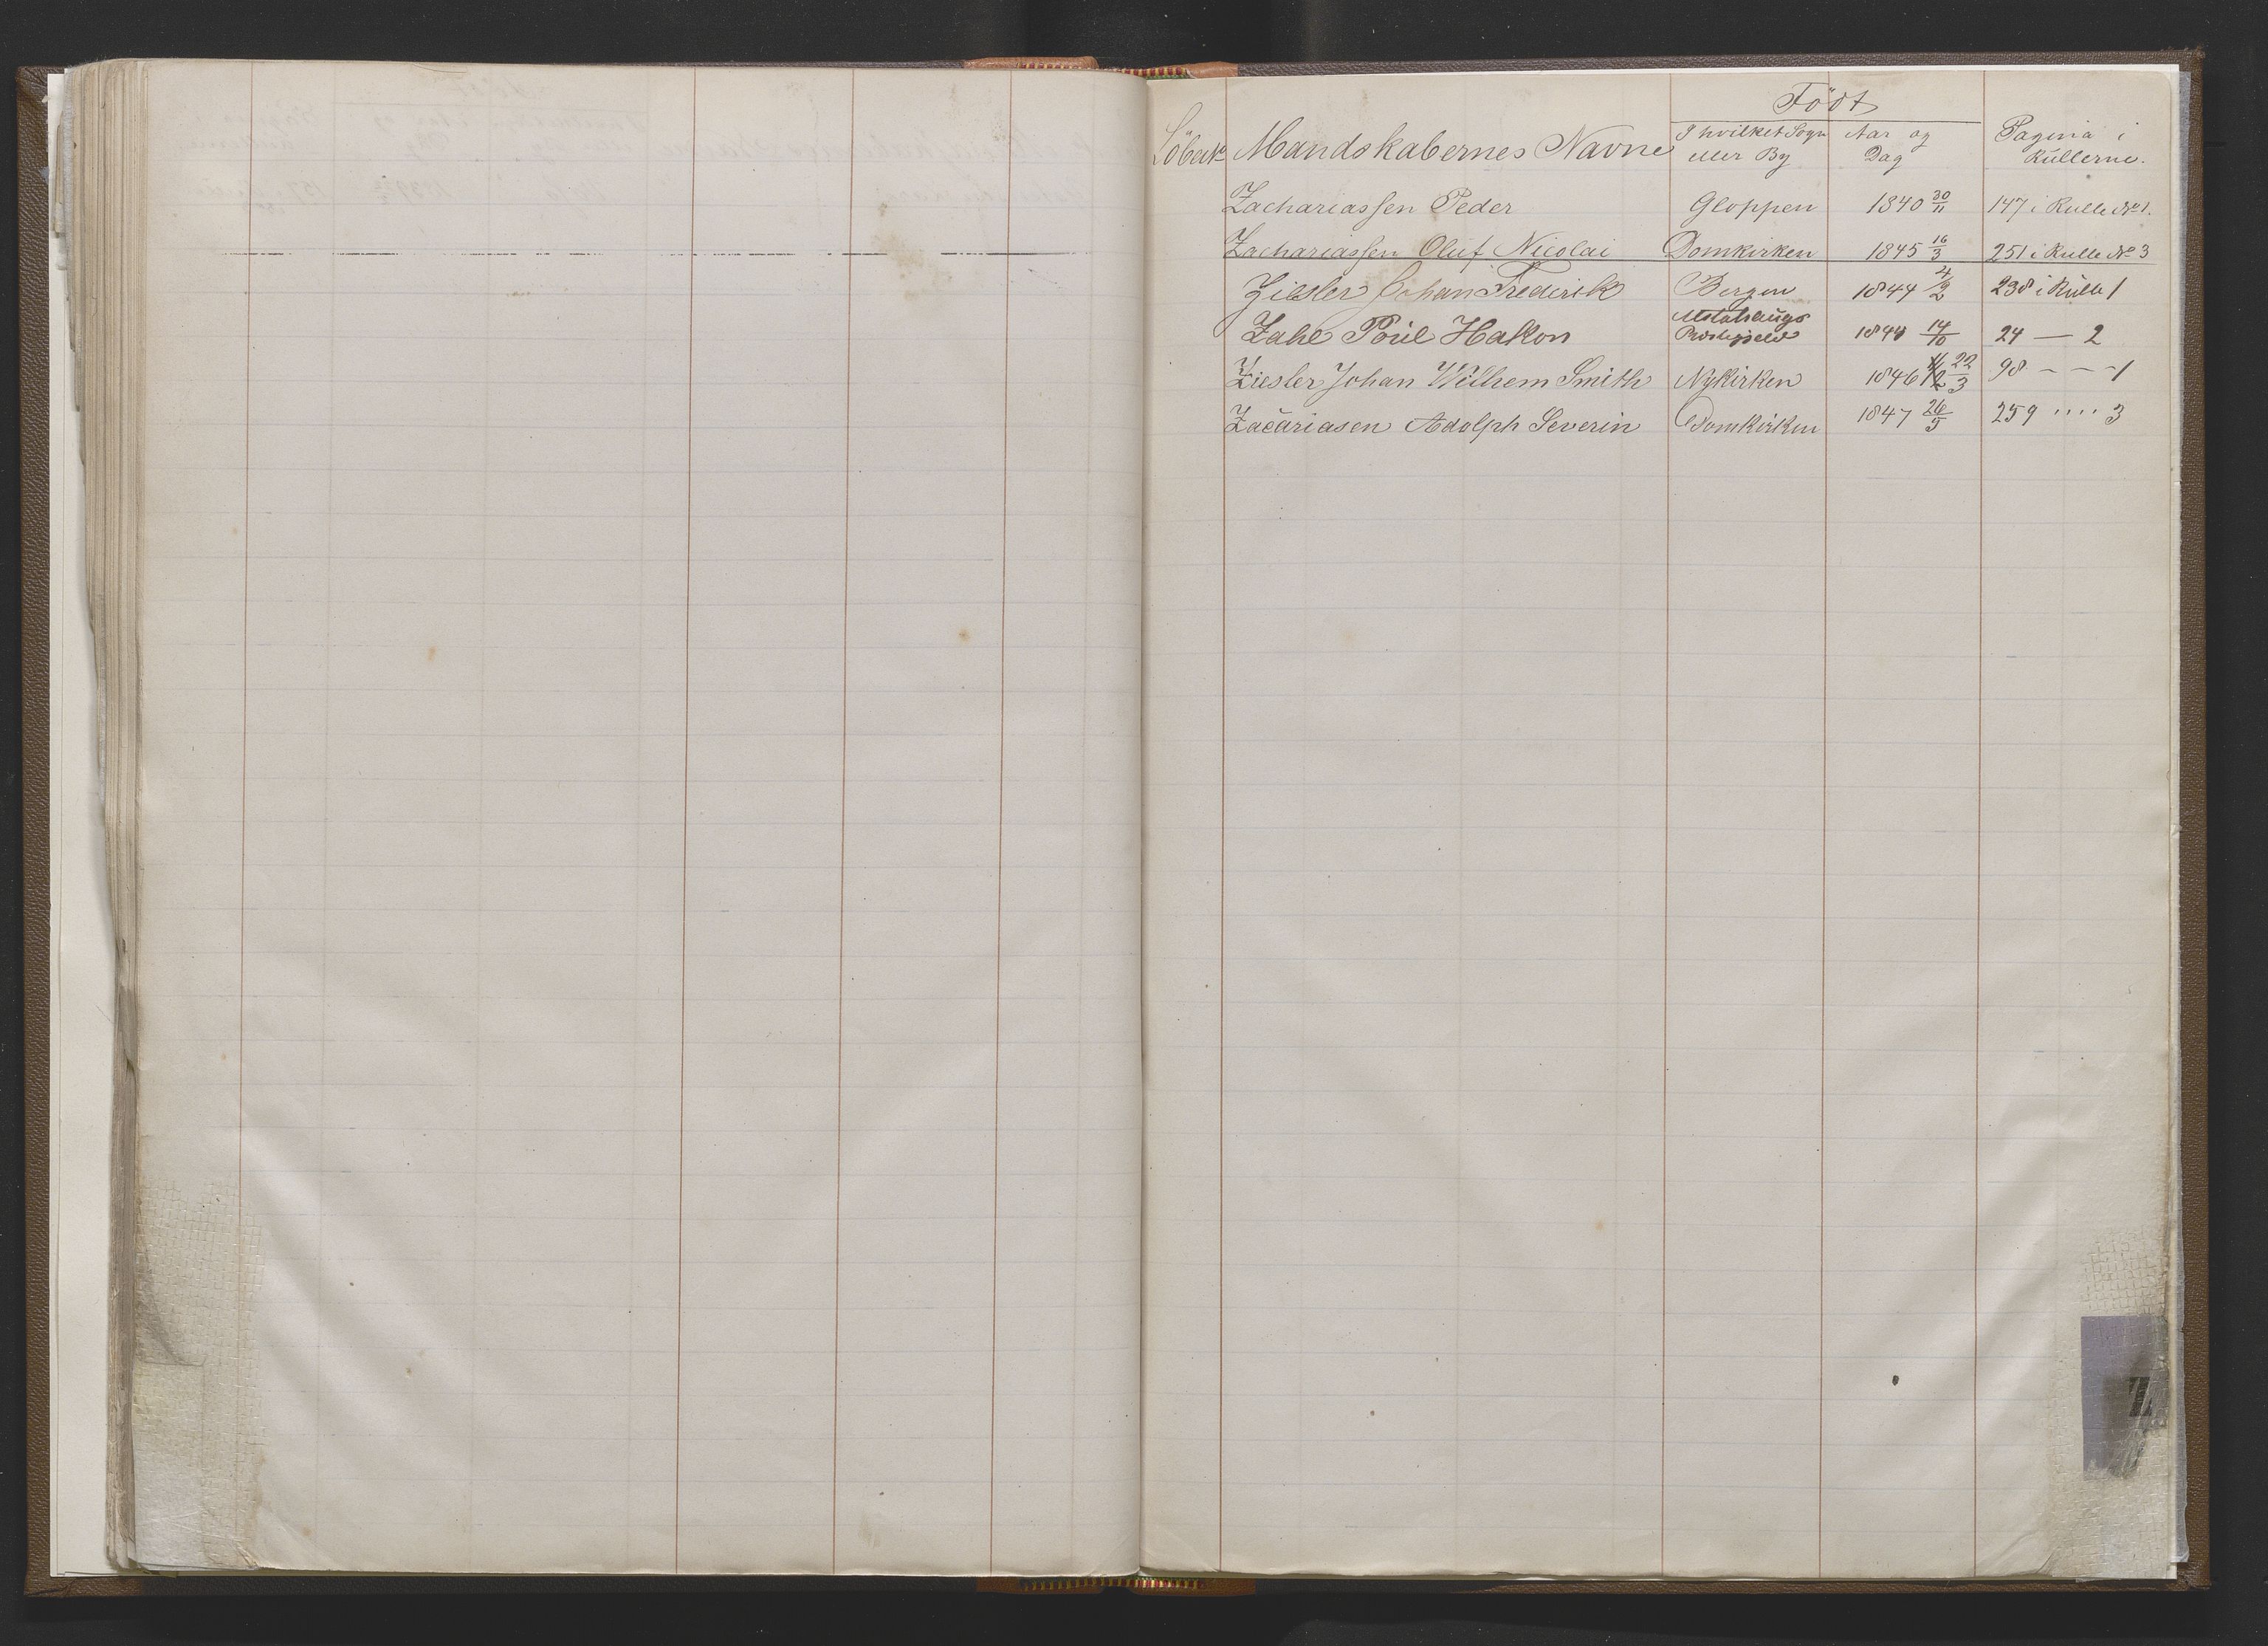 Födt
Löbe No Mandskabernes Navne I hvilket Sogn eller By Aar og Dag Pagina i Rullerne.
Zachariassen Peder Gloppen 1840 30/11 147 i Rulle No 1.
Zachariassen Oluf Nicolai Domkirken 1845 16/3 251 i Rulle No 3
Ziesler Johan Frederik Bergen 1844 4/2 238 i Rulle 1
Zahl Poul Hakon Alstahaugs Præstegjeld 1844 14/10 24 — 2
Ziesler Johan Wilhem Smith Nykirken 1846 22/3 98 - - - 1
Zacariasen Adolph Severin Domkirken 1847 26/5 259 .... 3
Z